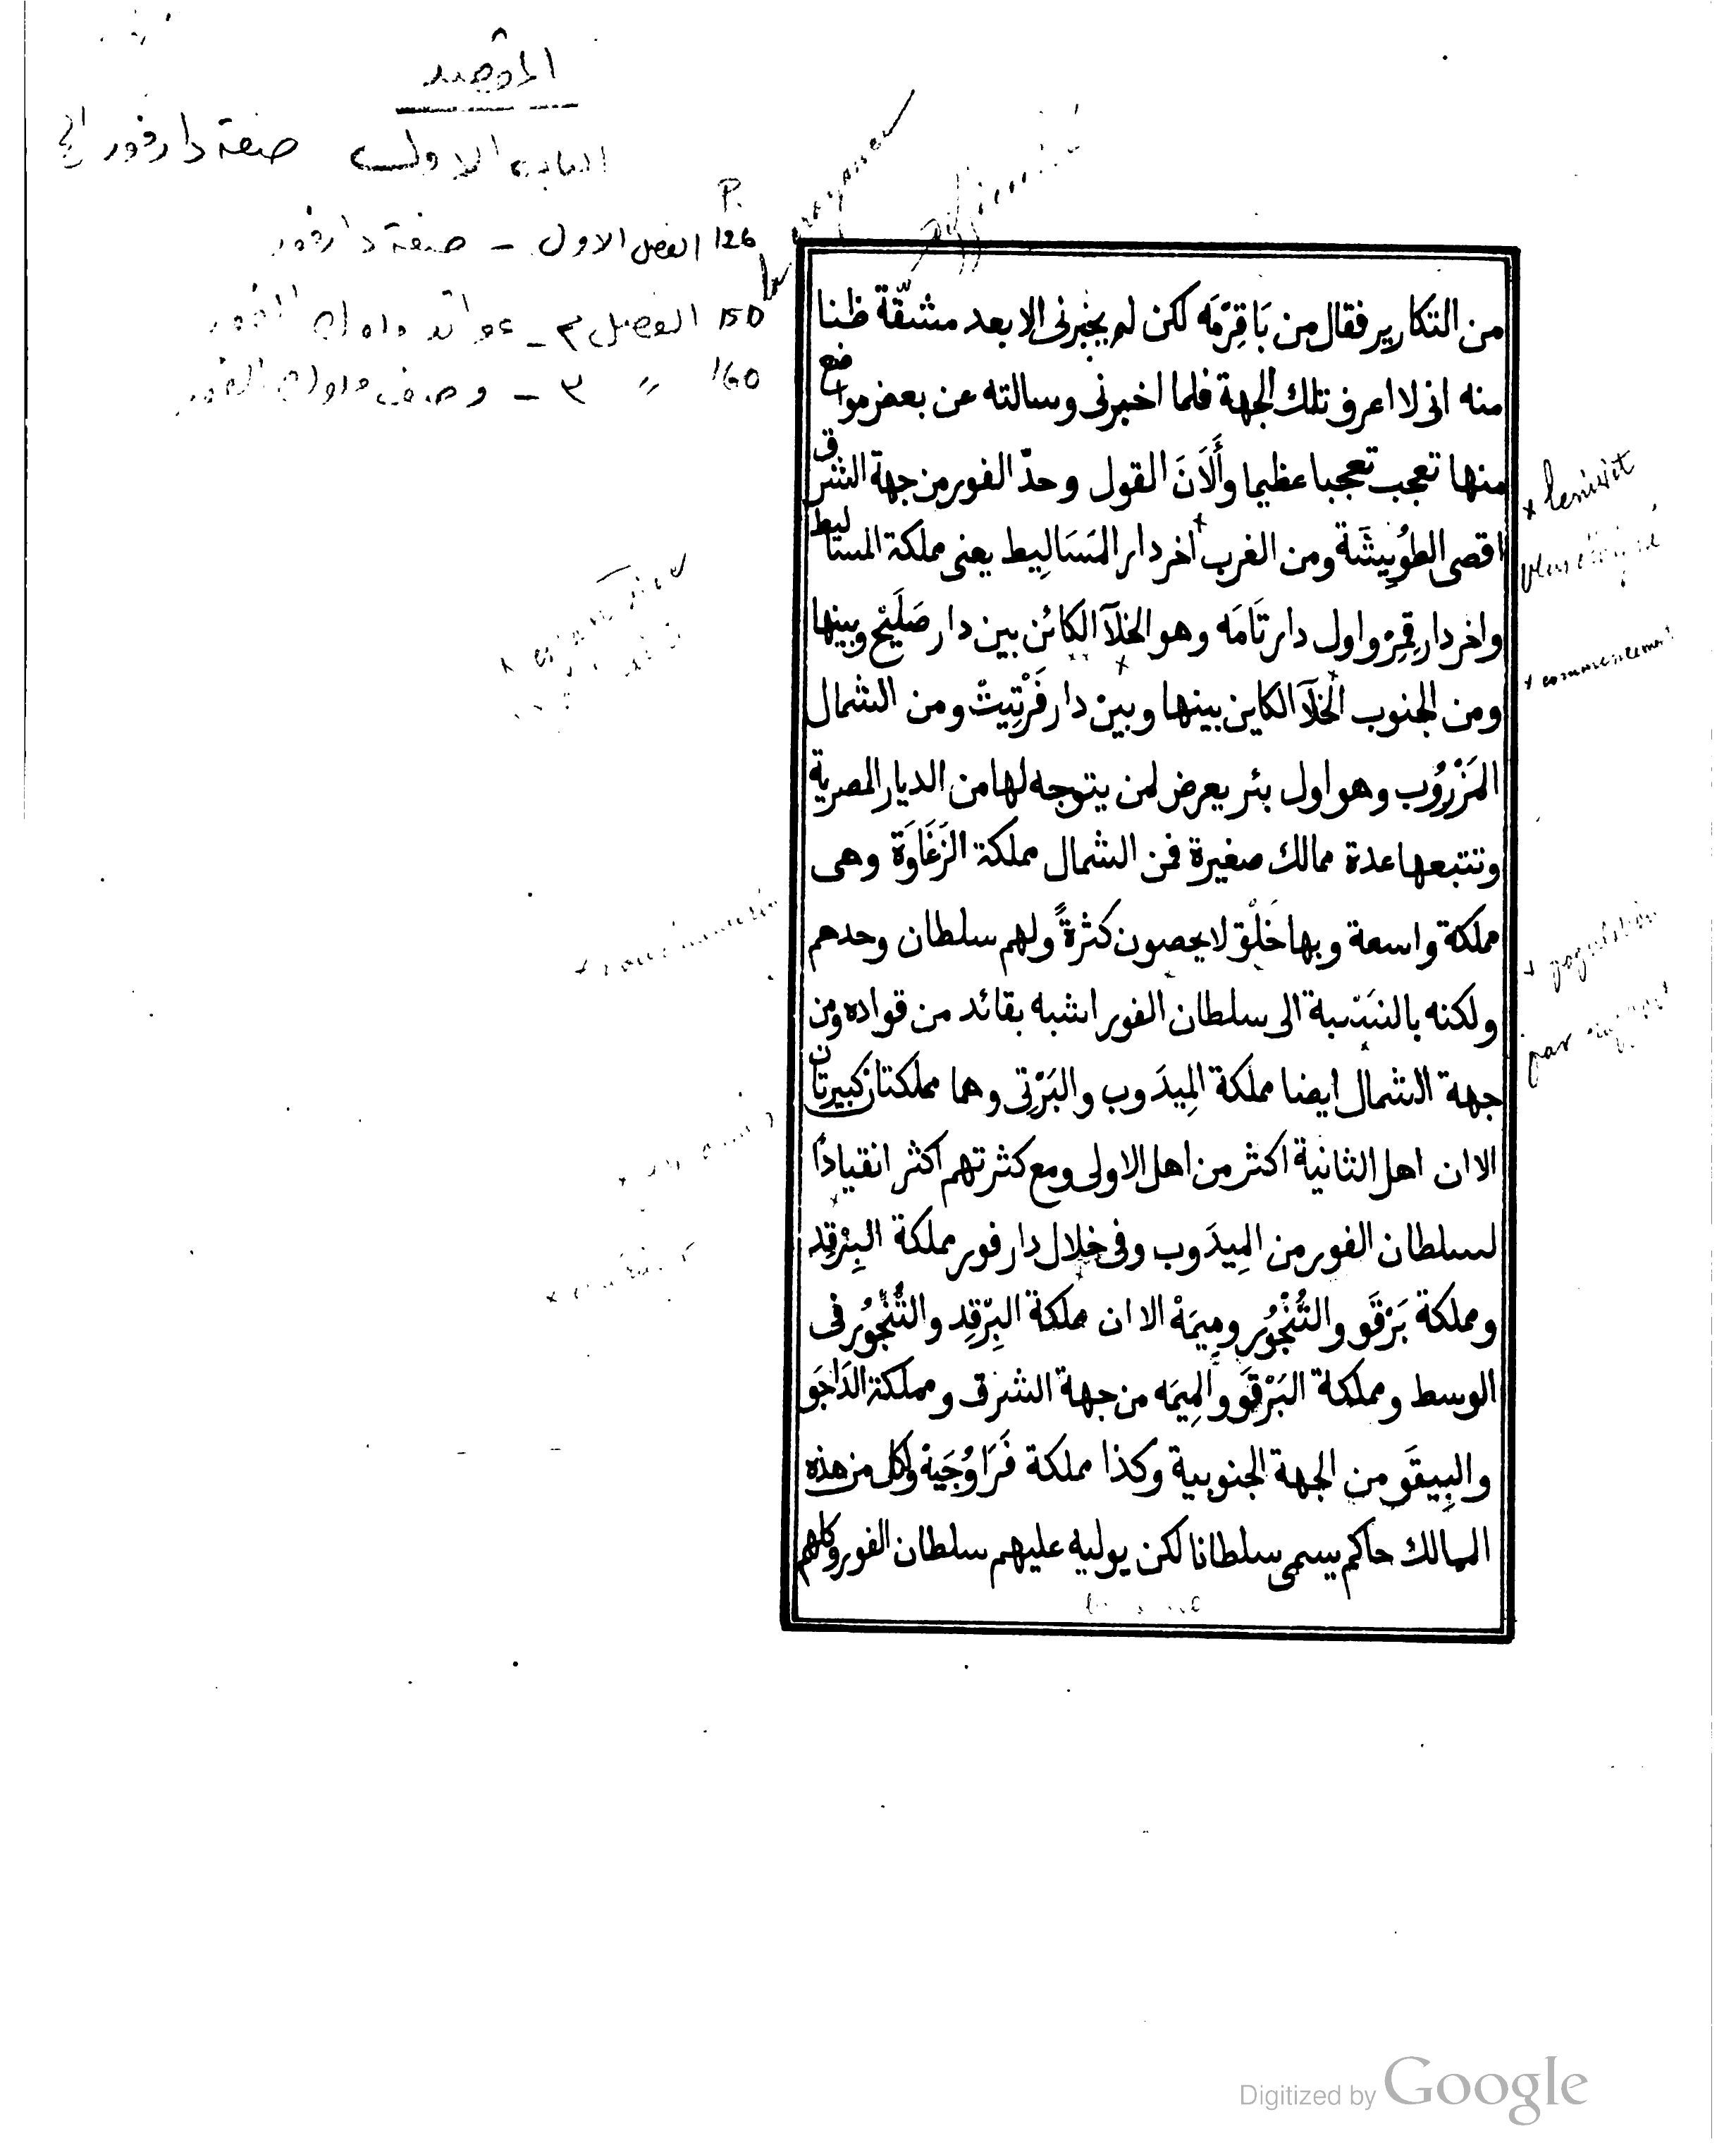 المقصد
الباب الاول صفة دارفور الخ
P.
126 الفصل الاول - صفة دارفور
150 الفصل ٢ - عوائد ملوك الفور
160 " ٣ - وصف ملوك الفور
من التكارير فقال من بَاقِرْمَه لكن لم يخبرنى الا بعد مشقّة ظنا
منه انى لا اعرف تلك الجهة فلما اخبرنى وسالته عن بعض مواضع
منها تعجب تعجبا عظيما وأَلَانَ القول وحدّ الفور من جهة الشرق
اقصى الطُوِيشَة ومن الغرب اخر دار المَسَالِيط يعنى مملكة المساليط
واخر دار قِمِرْ واول دار تَامَه وهو الخلآ الكائن بين دار صَلَيْح وبينها
ومن الجنوب الخلآ الكاين بينها وبين دار فَرْتِيتْ ومن الشمال
المَزْرُوُب وهو اول بئر يعرض لمن يتوجه لها من الديار المصرية
وتتبعها عدة ممالك صغيرة فمن الشمال مملكة الزَغَاوَة وهى
مملكة واسعة وبها خَلْق لا يحصون كثرةً ولهم سلطان وحدهم
ولكنه بالنسبة الى سلطان الفور اشبه بقائد من قواده ومن
جهة الشمال ايضا مملكة المِيدَوب والبَرْتِى وهما مملكتان كبيرتان
الا ان اهل الثانية اكثر من اهل الاولى ومع كثرتهم اكثر انقيادًا
لسلطان الفور من المِيدَوب وفى خِلال دار فور مملكة البِرْقِد
ومملكة بَرْقَو والتُنْجُوُر ومِيمَهْ الا ان مملكة البِرْقِد والتُنْجُوُر فى
الوسط ومملكة البَرْقَو والمِيمَه من جهة الشرق ومملكة الدَاجَو
والبِيقَو من الجهة الجنوبية وكذا مملكة فَرَاوُجَيهْ ولكل من هذه
الممالك حاكم يسمى سلطانا لكن يوليه عليهم سلطان الفور وكلهم
+ commencement
+ population
Digitized by Google